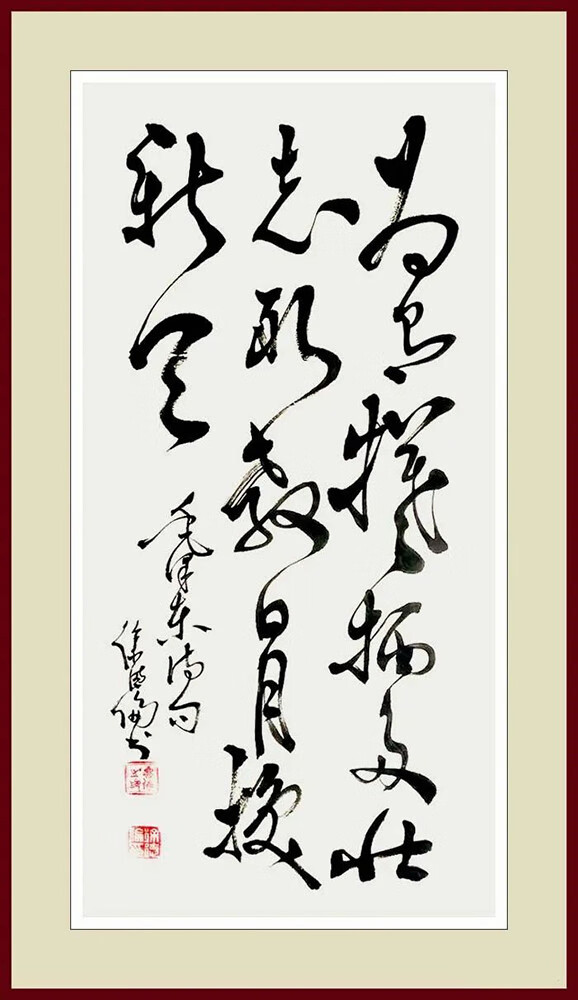 为有犧牲多壮
志敢教日月换
新天
毛泽东诗句
徐书